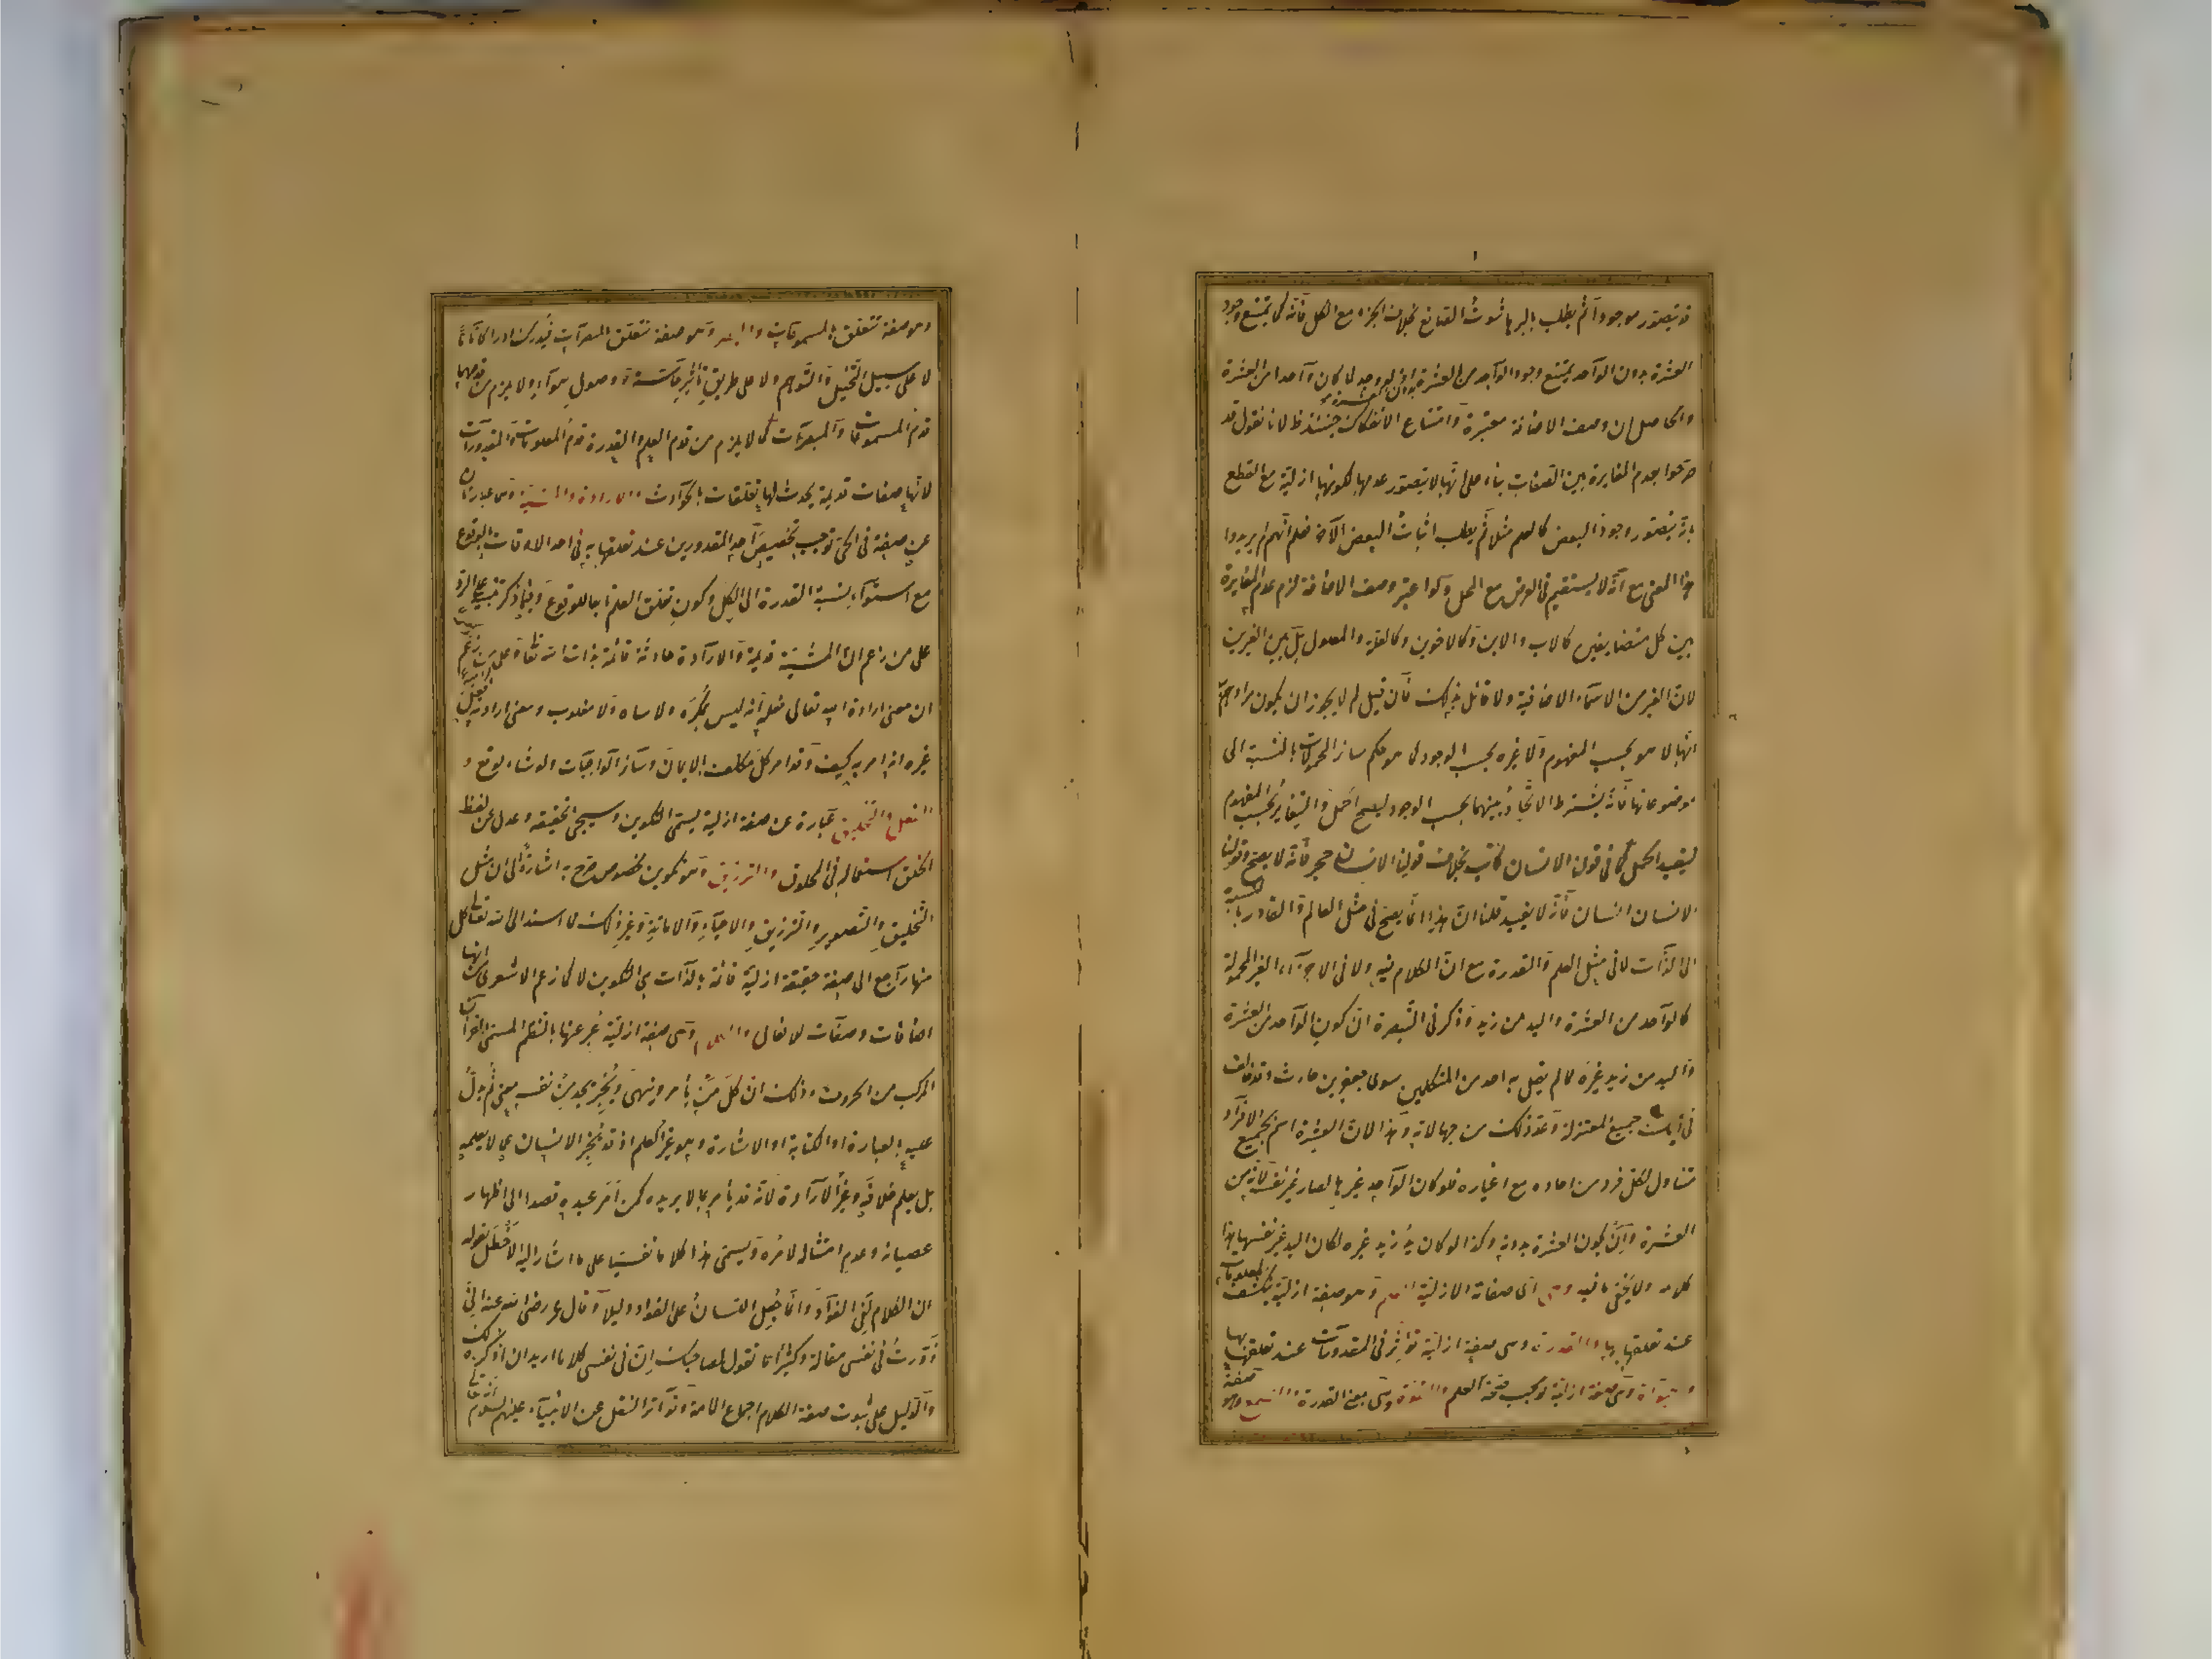 قد يتصور موجودا ثم يطلب بالبرهان ثبوت الصانع بخلاف الجزء مع الكل فانه كما يمتنع وجود
العشرة بدون الواحد يمتنع وجود الواحد من العشرة بدون العشرة اذ لو وجد لما كان واحدا من العشرة
والحاصل ان وصف الاضافة معتبرة وامتناع الانفكاك حينئذ ظ لانا نقول قد
صرحوا بعدم المغايرة بين الصفات بناء على انها لا يتصور عدمها لكونها ازلية مع القطع
بانه يتصور وجود البعض كالعلم مثلا ثم يطلب اثبات البعض الآخر فعلم انهم لم يريدوا
هذا المعنى مع انه لا يستقيم في العرض مع المحل ولو اعتبر وصف الاضافة لزم عدم المغايرة
بين كل متضايفين كالاب والابن وكالاخوين وكالعلة والمعلول بل بين الغيرين
لان الغير من الاسماء الاضافية ولا قائل بذلك فان قيل لم لا يجوز ان يكون مرادهم
انها لا هو بحسب المفهوم ولا غيره بحسب الوجود كما هو حكم سائر المحمولات بالنسبة الى
موضوعاتها فانه يشترط الاتحاد بينهما بحسب الوجود ليصح الحمل والتغاير بحسب المفهوم
ليفيد الحمل كما في قولنا الانسان كاتب بخلاف قولنا الانسان حجر فانه لا يصح وقولنا
الانسان انسان فانه لا يفيد قلنا ان هذا انما يصح في مثل العالم والقادر بالنسبة
الى الذات لا في مثل العلم والقدرة مع ان الكلام فيه ولا في الاجزاء الغير المحمولة
كالواحد من العشرة واليد من زيد وذكر في التبصرة ان كون الواحد من العشرة
واليد من زيد غيره مما لم يقل به احد من المتكلمين سوى جعفر بن حارث وقد خالف
في ذلك جميع المعتزلة وعد ذلك من جهالاته وهذا لان العشرة اسم لجميع الافراد
متناول لكل فرد من احاده مع اغياره فلو كان الواحد غيرها لصار غير نفسه لانه من
العشرة وان تكون العشرة بدونه وكذا لو كان يد زيد غيره لكان اليد غير نفسها هذا
كلامه ولا يخفى ما فيه وهي اى صفاته الازلية العلم وهو صفة ازلية ينكشف المعلومات
عند تعلقها بها والقدرة وهي صفة ازلية تؤثر في المقدورات عند تعلقها بها
والحيوة وهي صفة ازلية توجب صحة العلم والقوة وهي بمعنى القدرة والسمع وهو صفة
وهو صفة تتعلق بالمسموعات والبصر وهو صفة تتعلق بالمبصرات فيدرك ادراكا تاما
لا على سبيل التخيل والتوهم ولا على طريق تأثير حاسة ووصول هواء ولا يلزم من قدمها
قدم المسموعات والمبصرات كما لا يلزم من قدم العلم والقدرة قدم المعلومات والمقدورات
لانها صفات قديمة يحدث لها تعلقات بالحوادث والارادة والمشية وهما عبارتان
عن صفة في الحي توجب تخصيص احد المقدورين عند تعلقها به في احد الاوقات بالوقوع
مع استواء نسبة القدرة الى الكل وكون تعلق العلم تابعا للوقوع وفيما ذكر تنبيه على الرد
على من زعم ان المشية قديمة والارادة حادثة قائمة بذات الله تعالى وعلى من زعم
ان معنى ارادة الله تعالى فعله انه ليس بمكره ولا ساه ولا مغلوب ومعنى ارادته فعل
غيره انه امر به كيف وقد امر كل مكلف بالايمان وسائر الواجبات ولو شاء لوقع و
الفعل والتخليق عبارة عن صفة ازلية يسمى التكوين وسيجئ تحقيقه وعدل عن لفظ
الخلق لشيوع استعماله في المخلوق والترزيق وهو تكوين مخصوص صرح به اشارة الى ان مثل
التخليق والتصوير والترزيق والاحياء والاماتة وغير ذلك مما اسند الى الله تعالى كل
منها راجع الى صفة حقيقة ازلية قائمة بالذات هي التكوين لا كما زعم الاشعري من انها
اضافات وصفات للافعال والكلام وهي صفة ازلية عبر عنها بالنظم المسمى بالقرآن
المركب من الحروف وذلك ان كل من يأمر وينهى ويخبر يجد من نفسه معنى ثم يدل
عليه بالعبارة او الكتابة او الاشارة وهو غير العلم اذ قد يخبر الانسان عما لا يعلمه
بل يعلم خلافه وغير الارادة لانه قد يأمر بما لا يريده كمن امر عبده قصدا الى اظهار
عصيانه وعدم امتثاله لامره ويسمى هذا كلاما نفسيا على ما اشار اليه الاخطل بقوله
ان الكلام لفي الفؤاد وانما جعل اللسان على الفؤاد دليلا وقال عمر رضى الله عنه انى
زورت في نفسى مقالة وكثيرا ما تقول لصاحبك ان في نفسى كلاما اريد ان اذكره لك
والدليل على ثبوت صفة الكلام اجماع الامة وتواتر النقل عن الانبياء عليهم السلام انه تعالى